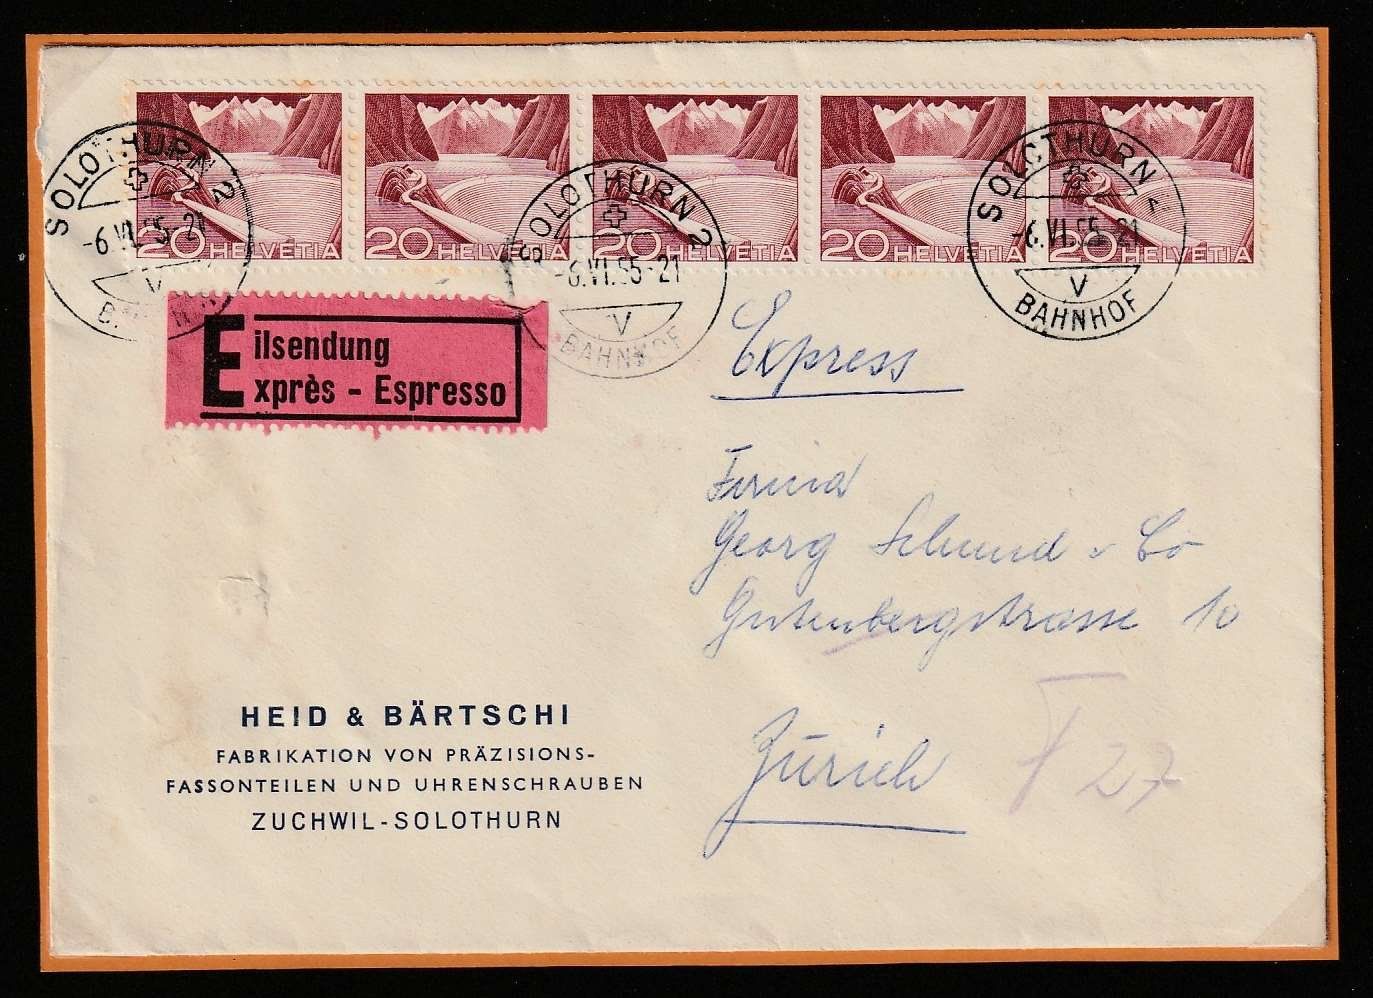 20 HELVETIA 20 HELVETIA 20 HELVETIA 20 HELVETIA 20 HELVETIA
SOLOTHURN 2
-6.VI.55-21
V
BAHNHOF
SOLOTHURN 2
-6.VI.55-21
V
BAHNHOF
SOLOTHURN 2
-6.VI.55-21
V
BAHNHOF
Eilsendung
Exprès - Espresso
Express
Firma
Georg Schmid & Co
Gutenbergstrasse 10
Zürich
27
HEID & BÄRTSCHI
FABRIKATION VON PRÄZISIONS-
FASSONTEILEN UND UHRENSCHRAUBEN
ZUCHWIL-SOLOTHURN